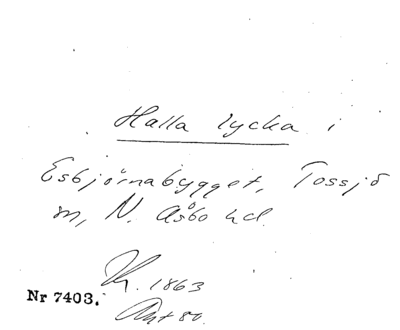 Halla lycka i
Esbjörnabygget, Tossjö
m, N. Åsbo hd.
1863
Nr 7403.